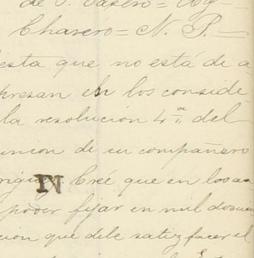 de I. Tasero = Ag
Chavero = N. P. =
esta que no está de a
presan en los conside
la resolución 4ª. del
uncon de su compañero
Creé que en los ca
poder fijar en mil doscie
cion que debe satisfacer el